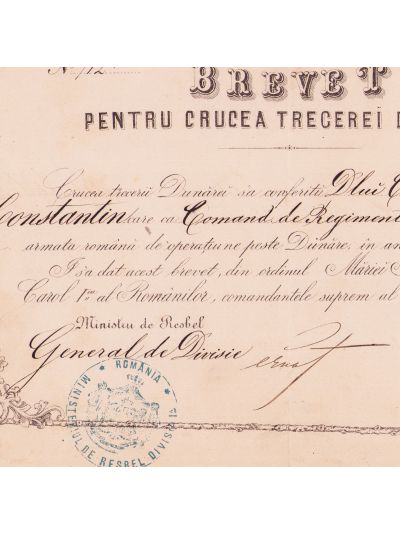 No 712
BREVET
PENTRU CRUCEA TRECEREI D
Crucea trecerii Dunărei s'a conferitŭ Dlui C
Constantin care ca Comand. de Regiment
armata română de operațiune peste Dunăre, in an
I s'a dat acest brevet, din ordinul Măriei
Carol Iiu al Românilor, comandantele suprem al
Ministru de Resbel
General de Divisie
ROMÂNIA
MINISTERIUL DE RESBEL DIVIS